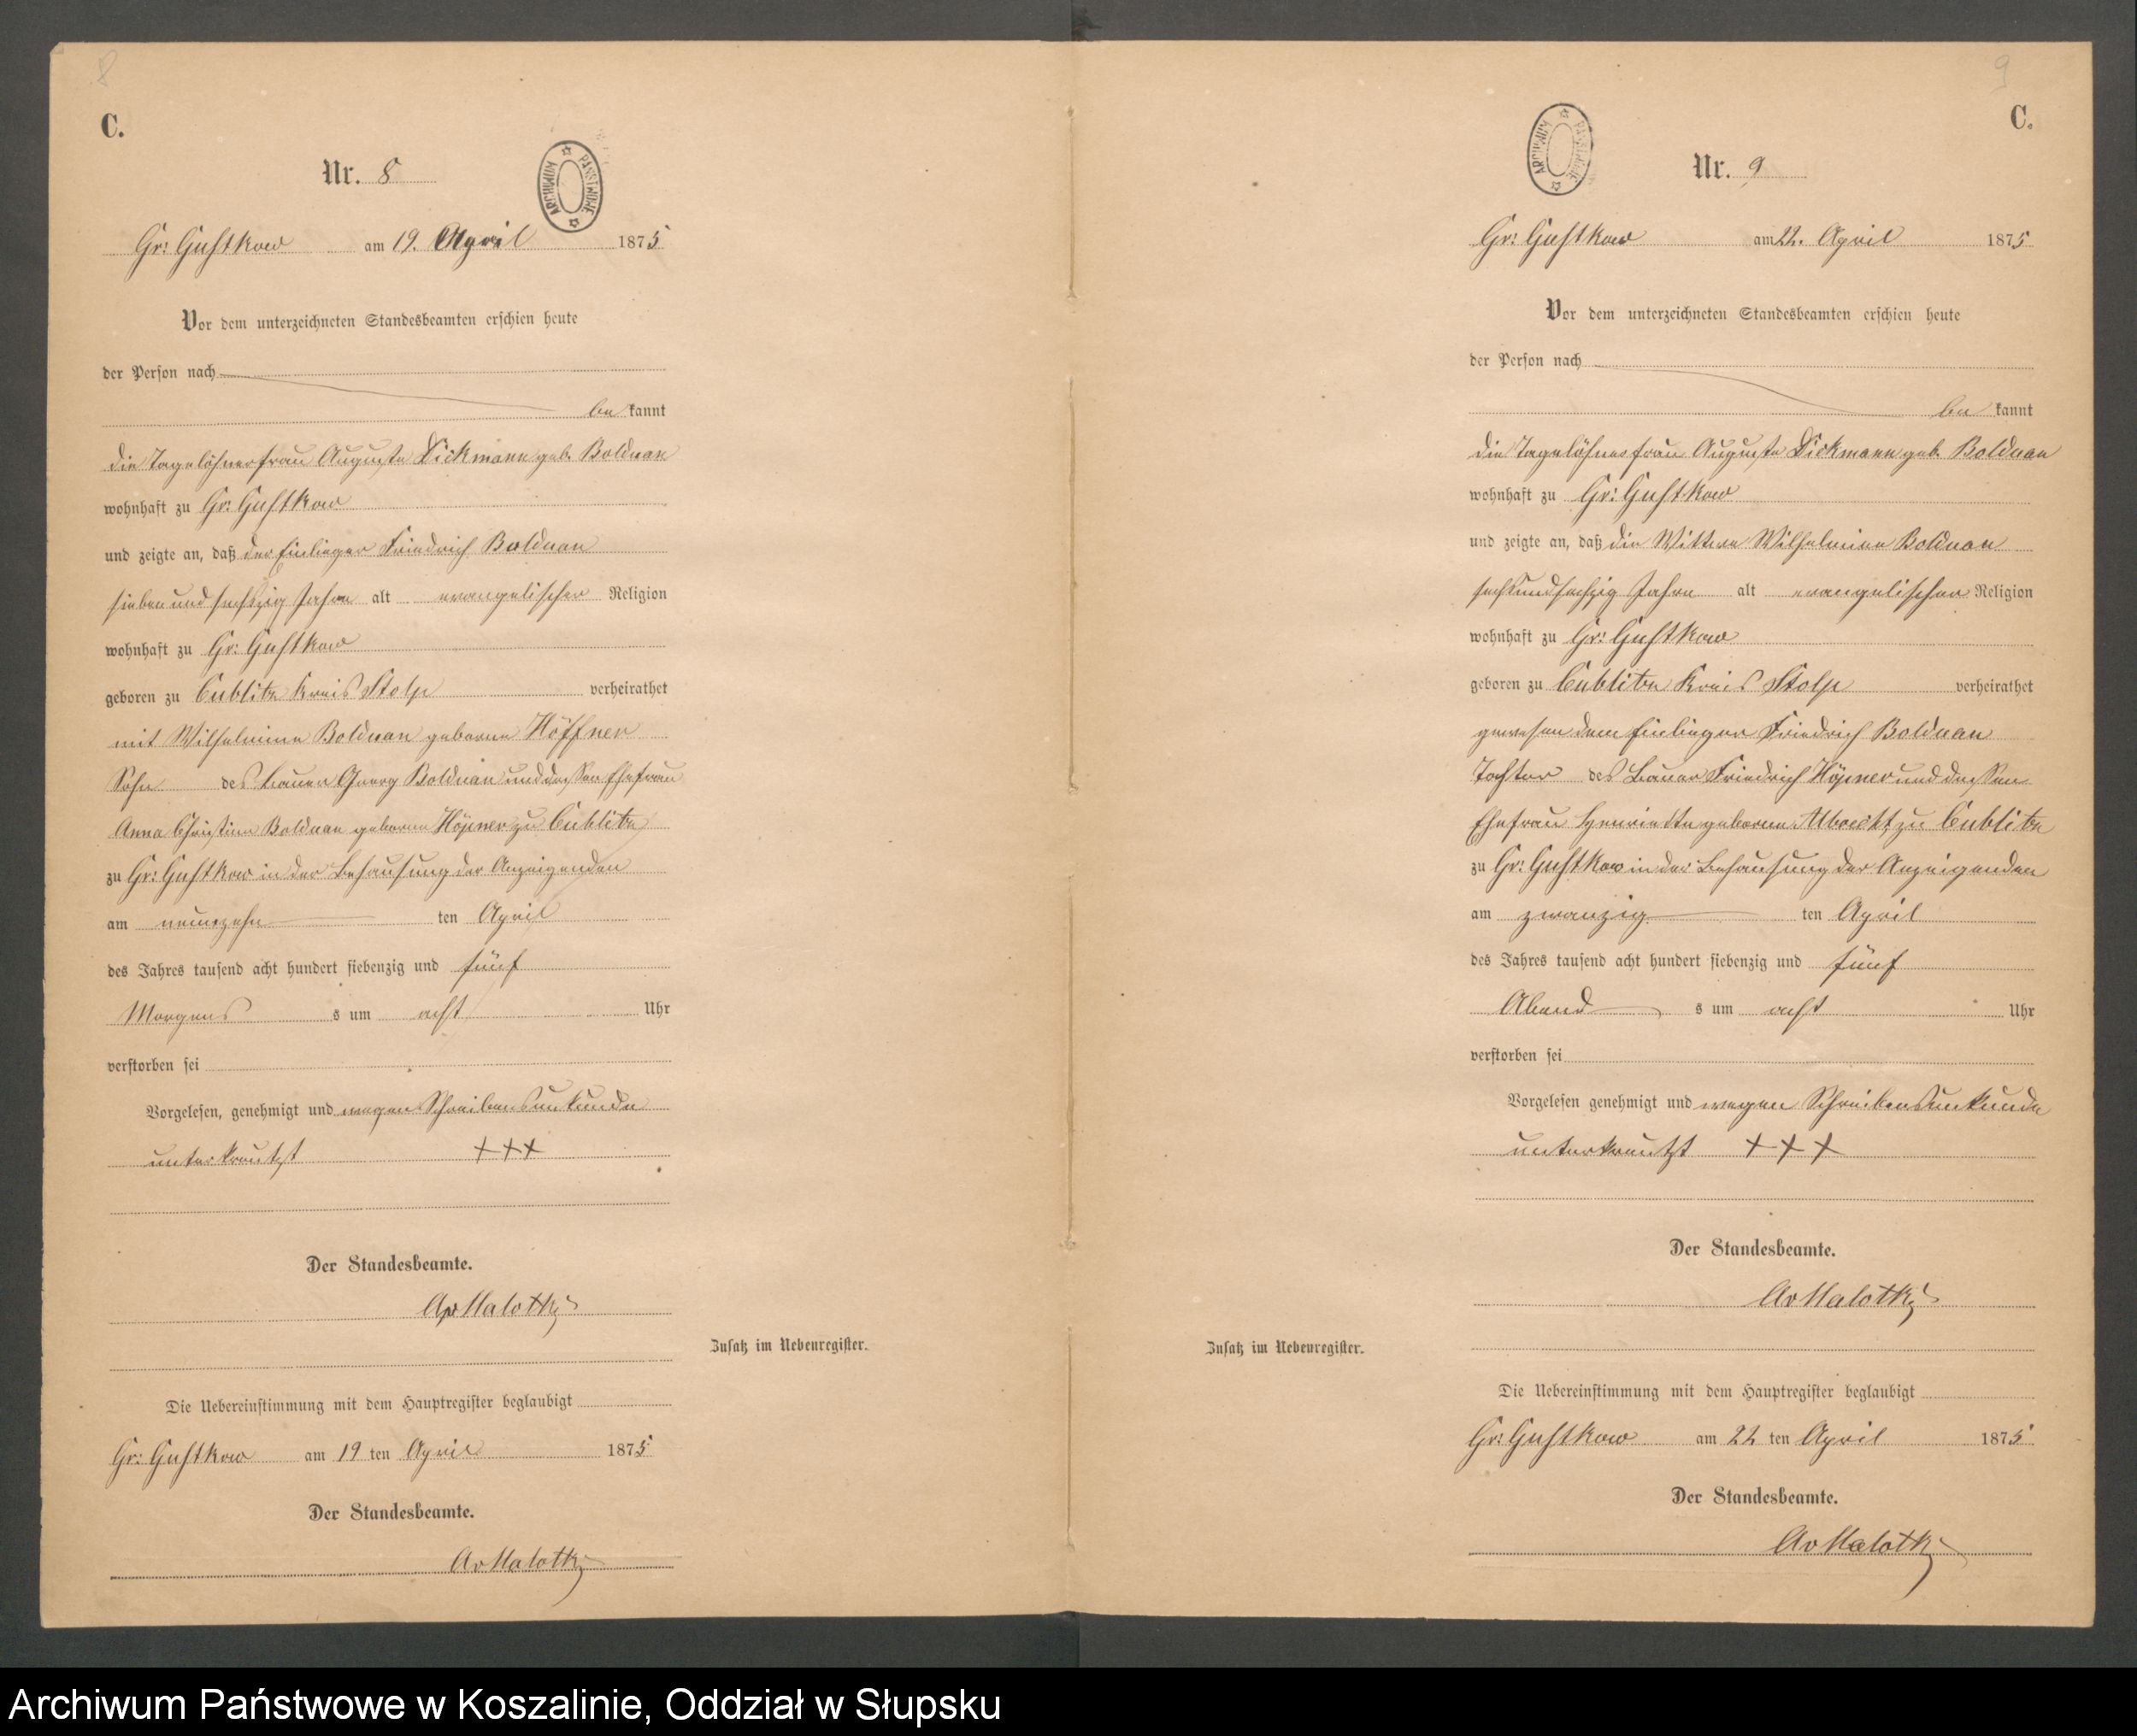 8
C.
Nr. 8
ARCHIWUM PAŃSTWOWE
Gr: Gustkow am 19. April 1875
Vor dem unterzeichneten Standesbeamten erschien heute
der Person nach
be kannt
die Tagelöhnerfrau Auguste Dickmann geb. Bolduan
wohnhaft zu Gr: Gustkow
und zeigte an, daß der Einlieger Friedrich Bolduan
sieben und sechszig Jahre alt evangelischer Religion
wohnhaft zu Gr: Gustkow
geboren zu Cublitz Kreis Stolp verheirathet
mit Wilhelmine Bolduan geborne Höffner
Sohn des Bauer Georg Bolduan und dessen Ehefrau
Anna Christine Bolduan geborne Höpner zu Cublitz
zu Gr: Gustkow in der Behausung der Anzeigenden
am neunzehn ten April
des Jahres tausend acht hundert siebenzig und fünf
Morgens s um acht Uhr
verstorben sei
Vorgelesen, genehmigt und wegen Schreibensunkunde
unterkreutzt +++
Der Standesbeamte.
AvMalotky
Zusatz im Nebenregister.
Die Uebereinstimmung mit dem Hauptregister beglaubigt
Gr: Gustkow am 19 ten April 1875
Der Standesbeamte.
AvMalotky
9
C.
ARCHIWUM PAŃSTWOWE
Nr. 9
Gr: Gustkow am 22. April 1875
Vor dem unterzeichneten Standesbeamten erschien heute
der Person nach
be kannt
die Tagelöhnerfrau Auguste Dickmann geb. Bolduan
wohnhaft zu Gr: Gustkow
und zeigte an, daß die Wittwe Wilhelmine Bolduan
sechsundsechzig Jahre alt evangelischer Religion
wohnhaft zu Gr: Gustkow
geboren zu Cublitz Kreis Stolp verheirathet
gewesen dem Einlieger Friedrich Bolduan
Tochter des Bauer Friedrich Höpner und dessen
Ehefrau Henriette geborne zu Cublitz
zu Gr: Gustkow in der Behausung der Anzeigenden
am zwanzig ten April
des Jahres tausend acht hundert siebenzig und fünf
Abend s um acht Uhr
verstorben sei
Vorgelesen genehmigt und wegen Schreibensunkunde
unterkreutzt +++
Der Standesbeamte.
AvMalotky
Zusatz im Nebenregister.
Die Uebereinstimmung mit dem Hauptregister beglaubigt
Gr: Gustkow am 22 ten April 1875
Der Standesbeamte.
AvMalotky
Archiwum Państwowe w Koszalinie, Oddział w Słupsku